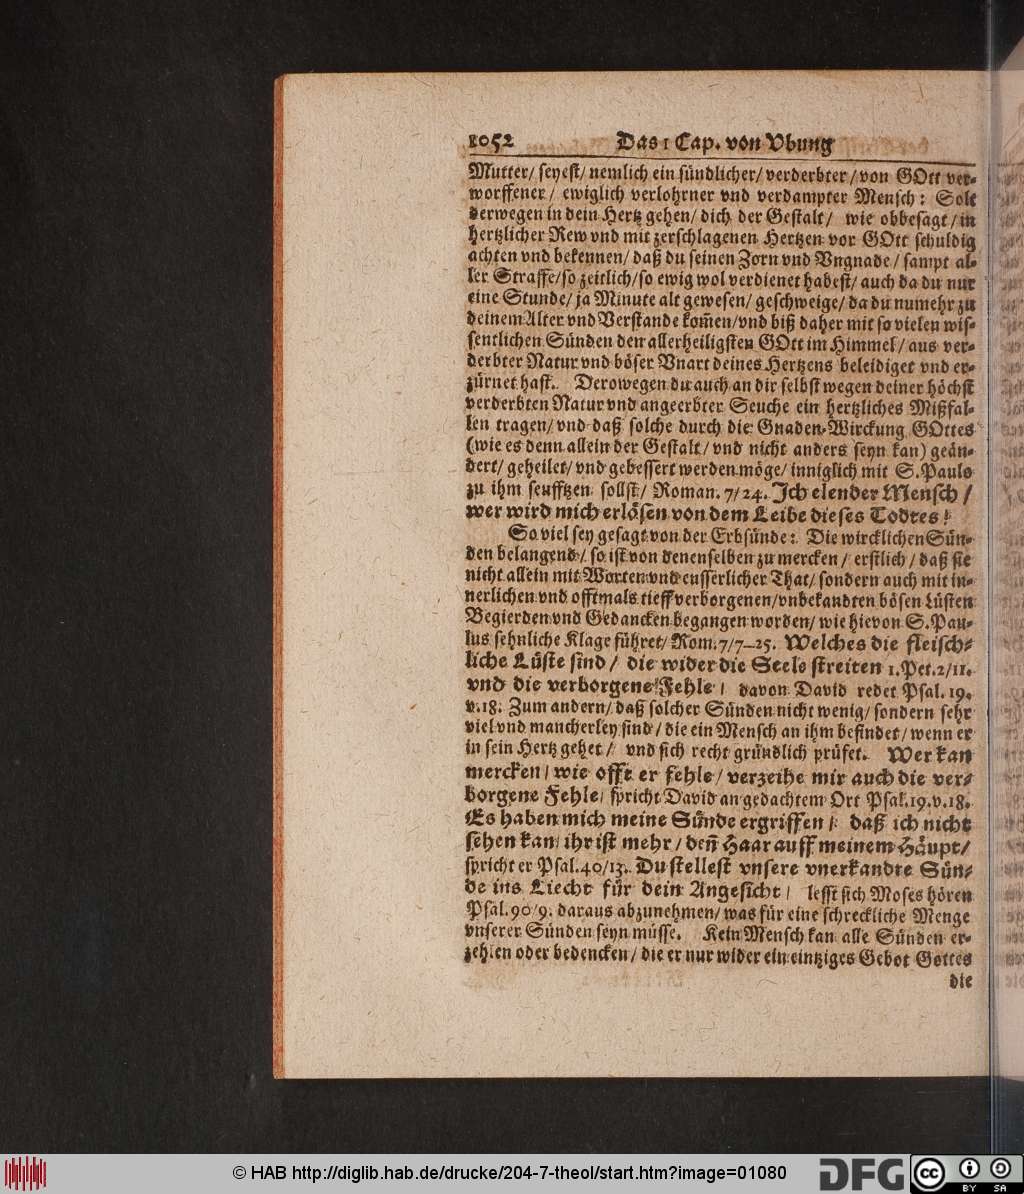 1052 Das 1 Cap. von Vbung
Mutter/ seyest/ nemlich ein sündlicher/ verderbter/ von GOtt ver-
worffener/ ewiglich verlohrner vnd verdampter Mensch: Solt
derwegen in dein Hertz gehen/ dich der Gestalt/ wie obbesagt/ in
hertzlicher Rew vnd mit zerschlagenen Hertzen vor GOtt schuldig
achten vnd bekennen/ daß du seinen Zorn vnd Vngnade/ sampt al-
ler Straffe/ so zeitlich/ so ewig wol verdienet habest/ auch da du nur
eine Stunde/ ja Minute alt gewesen/ geschweige/ da du numehr zu
deinem Alter vnd Verstande kom̃en/ vnd biß daher mit so vielen wis-
sentlichen Sünden den allerheiligsten GOtt im Himmel/ aus ver-
derbter Natur vnd böser Vnart deines Hertzens beleidiget vnd er-
zürnet hast. Derowegen du auch an dir selbst wegen deiner höchst
verderbten Natur vnd angeerbter Seuche ein hertzliches Mißfal-
len tragen/ vnd daß solche durch die Gnaden-Wirckung GOttes
(wie es denn allein der Gestalt/ vnd nicht anders seyn kan) geän-
dert/ geheilet/ vnd gebessert werden möge/ inniglich mit S. Pauls
zu ihm seufftzen sollst/ Roman. 7/24. Ich elender Mensch/
wer wird mich erlösen von dem Leibe dieses Todtes!
So viel sey gesagt von der Erbsünde: Die wircklichen Sün-
den belangend/ so ist von denenselben zu mercken/ erstlich/ daß sie
nicht allein mit Worten vnd eusserlicher That/ sondern auch mit in-
nerlichen vnd offtmals tieff verborgenen/ vnbekandten bösen Lüsten
Begierden vnd Gedancken begangen worden/ wie hievon S. Pau-
lus sehnliche Klage führet/ Rom. 7/7–25. Welches die fleisch-
liche Lüste sind/ die wider die Seele streiten 1. Pet. 2/11.
vnd die verborgene Fehle/ davon David redet Psal. 19.
v. 18. Zum andern/ daß solcher Sünden nicht wenig/ sondern sehr
viel vnd mancherley sind/ die ein Mensch an ihm befindet/ wenn er
in sein Hertz gehet/ vnd sich recht gründlich prüfet. Wer kan
mercken/ wie offt er fehle/ verzeihe mir auch die ver-
borgene Fehle/ spricht David an gedachtem Ort Psal. 19. v. 18.
Es haben mich meine Sünde ergriffen/ daß ich nicht
sehen kan/ ihr ist mehr/ deñ Haar auff meinem Häupt/
spricht er Psal. 40/13. Du stellest vnsere vnerkandte Sün-
de ins Liecht für dein Angesicht/ lesst sich Moses hören
Psal. 90/9. daraus abzunehmen/ was für eine schreckliche Menge
vnserer Sünden seyn müsse. Kein Mensch kan alle Sünden er-
zehlen oder bedencken/ die er nur wider ein eintziges Gebot Gottes
die
© HAB http://diglib.hab.de/drucke/204-7-theol/start.htm?image=01080 DFG cc BY SA